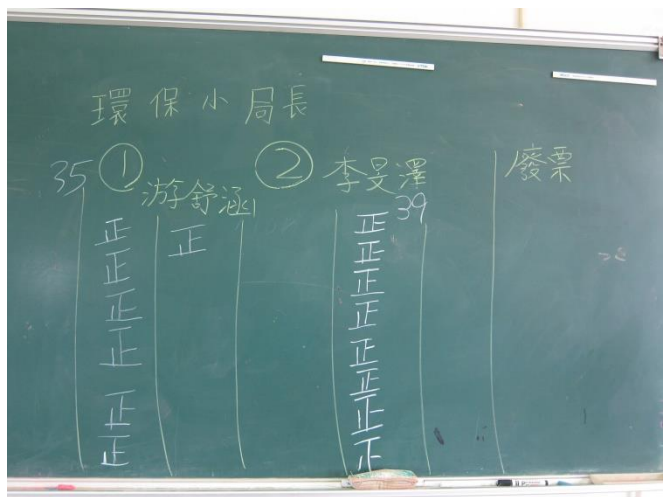 環保小局長
35 ① 游舒涵 ② 李旻澤 39 廢票
正 正 正
正 正
正 正
正 正
正 正
正 正
正
下